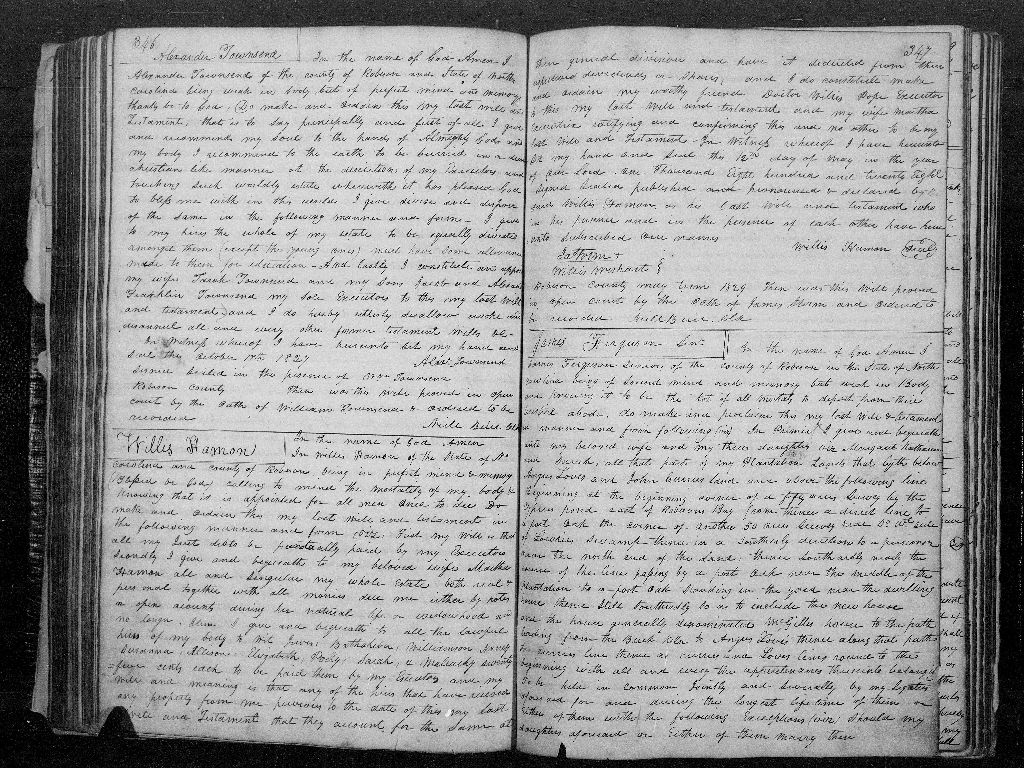 346
Alexander Townsend In the name of God Amen I
Alexander Townsend of the county of Robeson and State of North
Carolina being weak in body but of perfect mind and memory
thanks be to God, do make and ordain this my last will and
Testament, that is to say principally and first of all I give
and recommend my soul to the hands of Almighty God and
my body I recommend to the earth to be burried in a decent
christian like manner at the discretion of my Executors and
touching such worldly estate wherewith it has pleased God
to bless me with in this world I give devise and dispose
of the same in the following manner and form – I give
to my heirs the whole of my estate to be equally divided
amongst them except the young ones must have some allowance
made to them for education – And lastly I constitute and appoint
my wife Sarah Townsend and my sons Jacob and Alexander
Franklin Townsend my sole Executors to this my last Will
and testament and I do hereby utterly disallow revoke and
disannul all and every other former testament wills &c –
In Witness whereof I have hereunto set my hand and
seal this October 10th 1827
Alexr Townsend
Signed sealed in the presence of Wm Townsend
Robeson County Then was this will proved in open
court by the Oath of William Townsend & Ordered to be
recorded
Neill Buie Clk
Willis Hamon In the name of God Amen
I Willis Hamon of the State of No
Carolina and county of Robeson, being in perfect mind & memory
Blessed be God, calling to mind the mortality of my body &
knowing that it is appointed for all men once to die Do
make and Ordain this my last Will and testament in
the following manner and form Viz. First my Will is that
all my Just debts be punctually paid by my Executors
Secondly I give and bequeath to my beloved wife Martha
Hamon all and Singular my whole Estate both real &
personal together with all monies due me either by notes
or open accounts during her natural life or widowhood and
no longer. Then I give and bequeath to all the lawful
heirs of my body to Wit
Susanna, Alison, Elizabeth, Polly, Sarah, &
five cents each to be paid them by my Executor and my
Will and meaning is that any of the heirs that have received
any property from me previous to the date of this my last
Will and Testament that they account for the same at
347
their general division and have it deducted from their
aforesaid dividends or shares, and I do constitute make
and ordain my worthy friend Doctor Willis Pope Executor
to this my last Will and testament and my wife Martha
Executrix ratifying and confirming this and no other to be my
last Will and Testament – In Witness whereof I have hereunto
set my hand and Seal this 12th day of May in the year
of our Lord one Thousand Eight hundred and Twenty Eight
Signed Sealed published and pronounced & declared by the
said Willis Hamon as his last Will and testament who
in his presence and in the presence of each other have here
unto Subscribed our names
Willis Hamon Seal
Willis
Robeson County May Term 1829 Then was this Will proved
in open court by the Oath of James and Ordered to
be recorded Neill Buie Clk
James Ferguson Senr In the name of God Amen I
James Ferguson Senior of the County of Robeson in the State of North
Carolina being of Sound mind and memory but weak in Body
and knowing it to be the lot of all mortals to depart from their
abode, do make and proclaim this my last Will & testament
in manner and form following Viz In Primis I give and bequeath
unto my beloved wife and my three daughters Viz Margaret Katharine
and Sarah, all that part of my Plantation Lands that lyeth below
Angus Loves and John Curries land and above the following line
Beginning at the beginning corner of a fifty acres Survey by the
Cypress pond East of Bay from thence a direct line to
a post Oak the corner of another 50 acres Survey
of Swamp thence in a Southerly direction to a
near the north end of the Land thence Southwardly nearly the
course of the line passing by a post Oak near the middle of the
Plantation to a post Oak standing in the yard near the dwelling
house thence Still Southwardly so as to include the new house
and the house generally denominated McGilles house to the path
leading from the to Angus Loves thence along that path
to curries line thence as curries and Loves lines round to the
beginning with all and every the appurtenances thereunto belonging
to be held in common Jointly and Severally by my Legatees
aforesaid for and during the longest life time of them or
Either of them with the following Exceptions Should my
daughters aforesaid or Either of them marry then